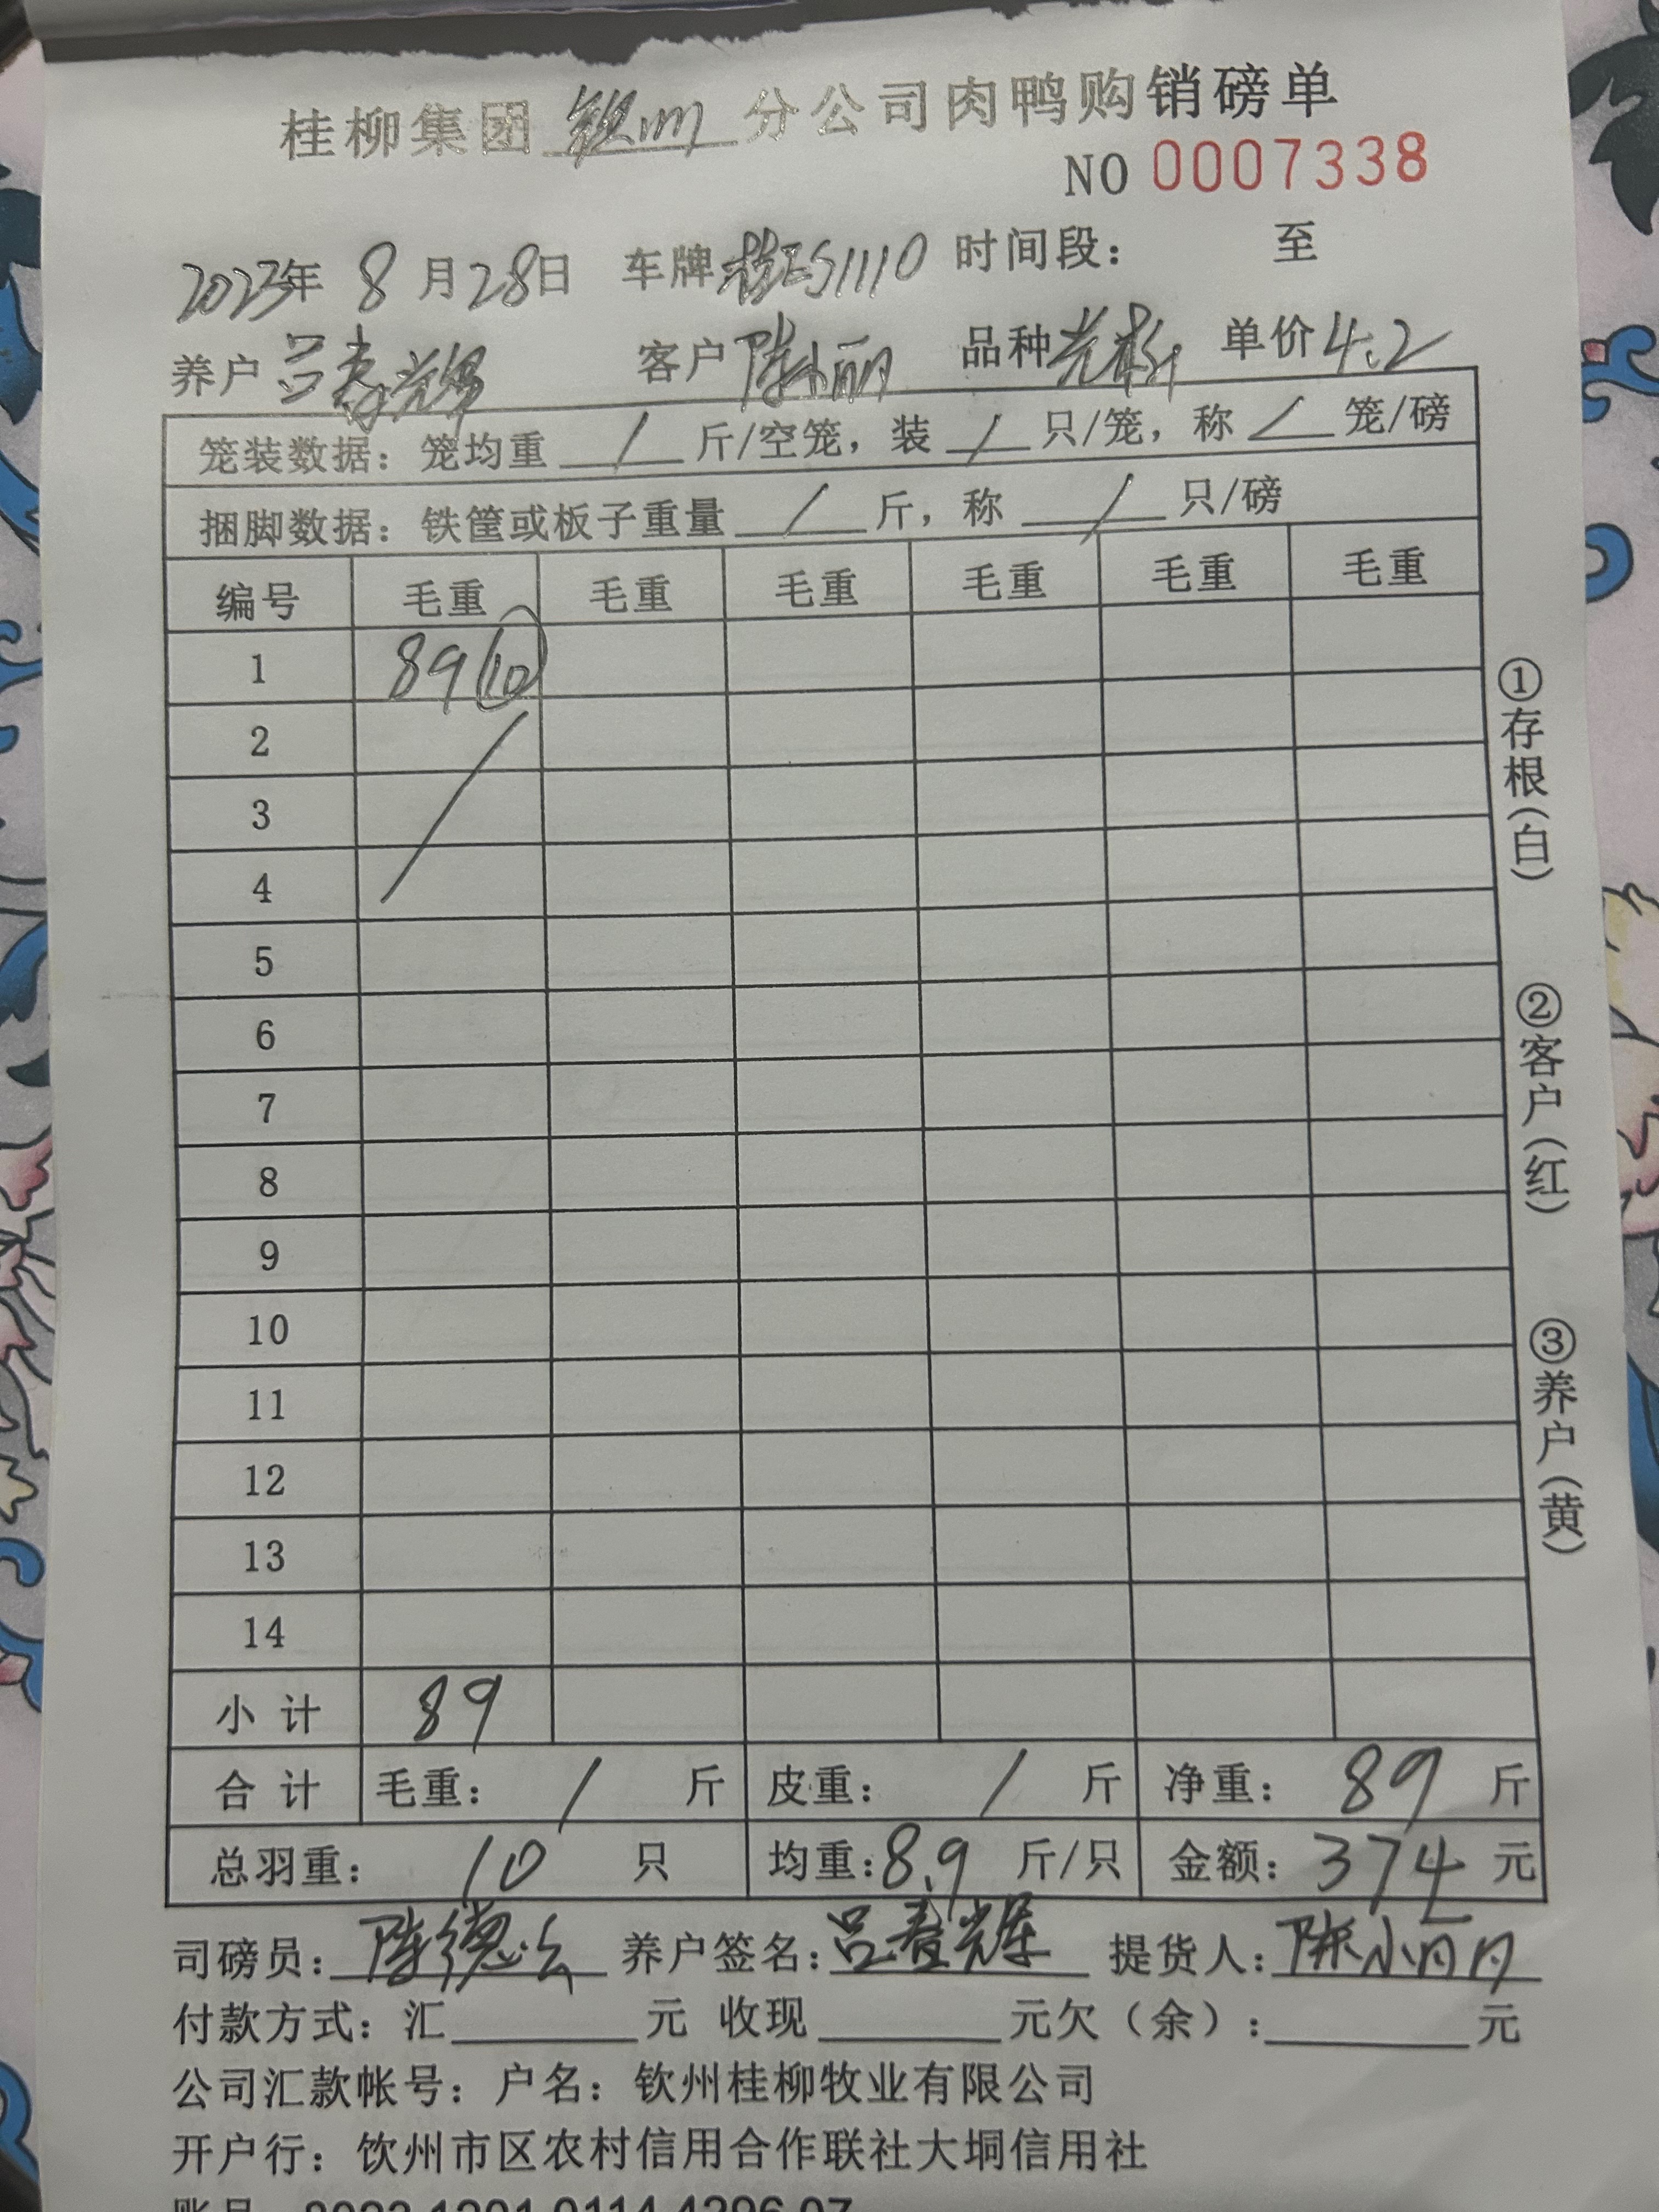 桂柳集团 钦州 分公司肉鸭购销磅单
NO 0007338
2023年 8 月 28日 车牌 桂ES1110 时间段： 至
养户 吕春辉 客户 陈小丽 品种 单价 4.2
笼装数据：笼均重 / 斤/空笼，装 / 只/笼，称 / 笼/磅
捆脚数据：铁筐或板子重量 / 斤，称 / 只/磅
编号 毛重 毛重 毛重 毛重 毛重 毛重
1 89 (10)
2
3
4
5
6
7
8
9
10
11
12
13
14
小 计 89
合 计 毛重： / 斤 皮重： / 斤 净重： 89 斤
总羽重： 10 只 均重：8.9 斤/只 金额：374 元
司磅员：陈德 养户签名：吕春辉 提货人：陈小丽
付款方式：汇 元 收现 元欠（余）： 元
公司汇款帐号：户名：钦州桂柳牧业有限公司
开户行：钦州市区农村信用合作联社大垌信用社
①存根（白）
②客户（红）
③养户（黄）